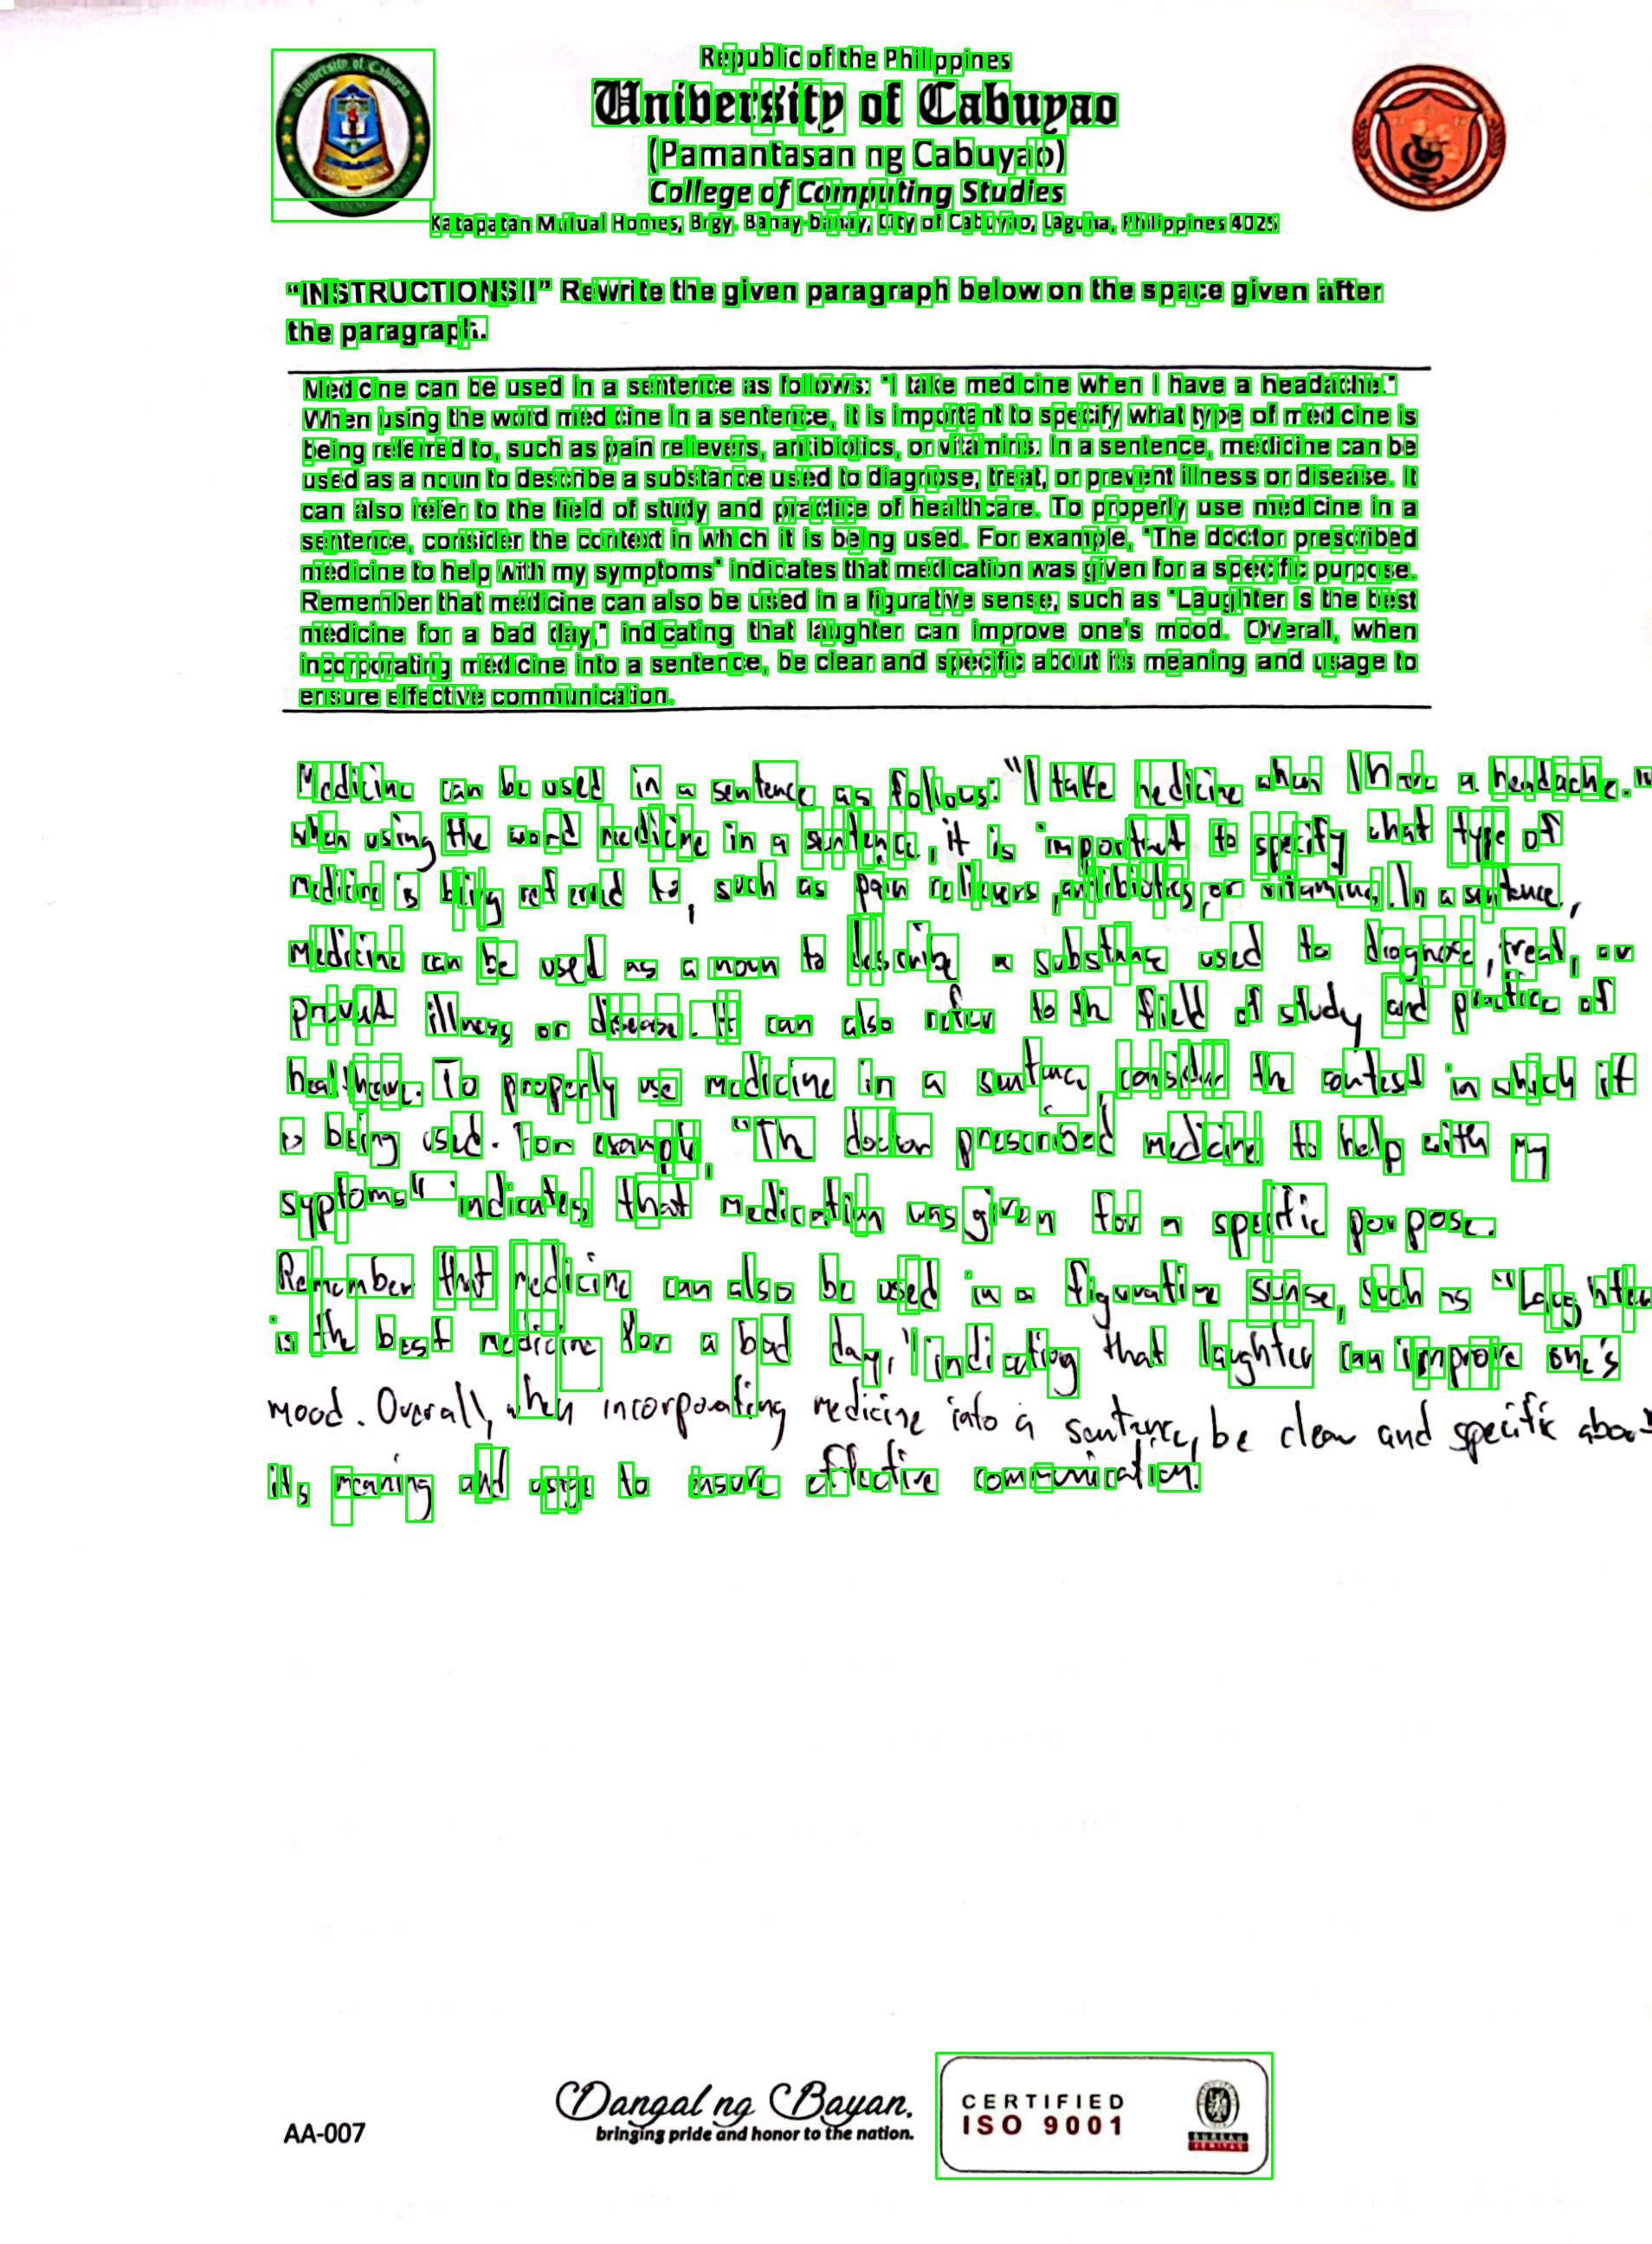 Republic of the Philippines
University of Cabuyao
(Pamantasan ng Cabuyao)
College of Computing Studies
Katapatan Mutual Homes, Brgy. Banay-banay, City of Cabuyao, Laguna, Philippines 4025
“INSTRUCTIONS!!” Rewrite the given paragraph below on the space given after
the paragraph.
Medicine can be used in a sentence as follows: "I take medicine when I have a headache."
When using the word medicine in a sentence, it is important to specify what type of medicine is
being referred to, such as pain relievers, antibiotics, or vitamins. In a sentence, medicine can be
used as a noun to describe a substance used to diagnose, treat, or prevent illness or disease. It
can also refer to the field of study and practice of healthcare. To properly use medicine in a
sentence, consider the context in which it is being used. For example, "The doctor prescribed
medicine to help with my symptoms" indicates that medication was given for a specific purpose.
Remember that medicine can also be used in a figurative sense, such as "Laughter is the best
medicine for a bad day," indicating that laughter can improve one's mood. Overall, when
incorporating medicine into a sentence, be clear and specific about its meaning and usage to
ensure effective communication.
Medicine can be used in a sentence as follows: "I take medicine when I have a headache."
when using the word medicine in a sentence, it is important to specify what type of
medicine is being referred to, such as pain relievers, antibiotics, or vitamins. In a sentence,
medicine can be used as a noun to describe a substance used to diagnose, treat, or
prevent illness or disease. It can also refer to the field of study and practice of
healthcare. To properly use medicine in a sentence, consider the contest in which it
is being used. For example, "The doctor prescribed medicine to help with my
syptoms" indicates that medication was given for a specific purpose.
Remember that medicine can also be used in a figurative sense, such as "Laughter
is the best medicine for a bad day," indicating that laughter can improve one's
mood. Overall, when incorporating medicine into a sentence, be clear and specific about
its meaning and usage to insure effective communication.
AA-007
Dangal ng Bayan.
bringing pride and honor to the nation.
CERTIFIED
ISO 9001
BUREAU
VERITAS